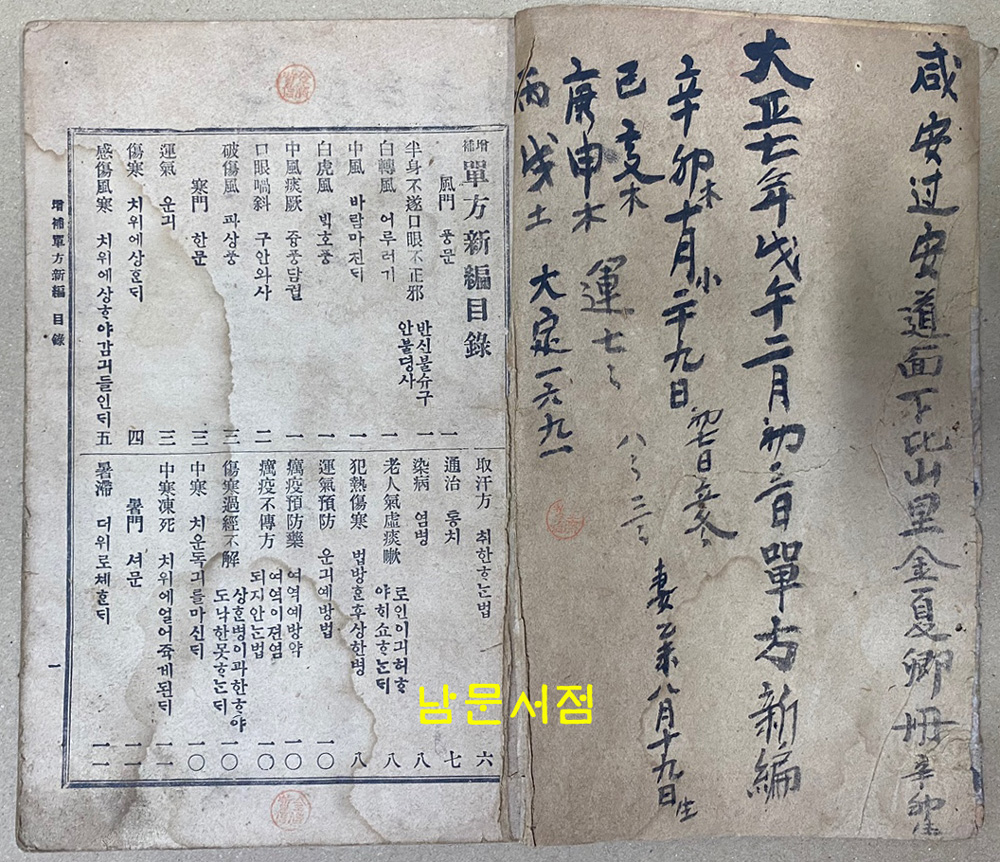 咸安过安道面下比山里金夏卿冊
大正七年戊午二月初三日單方新編
辛卯木十月小二十九日
初七日
妻乙未八月十九日生
己亥木
八〻三〻
庚申木
運七〻
丙戌土
大定一六九一
增補單方新編目錄
風門 풍문 一
半身不遂口眼不正邪 반신불슈구안불뎡사 一
白轉風 어루러기 一
中風 바람마진ᄃᆡ 一
白虎風 ᄇᆡᆨ호풍 一
中風痰厥 즁풍담궐 一
口眼喎斜 구안와사 二
破傷風 파상풍 三
寒門 한문 三
運氣 운긔 三
傷寒 치위에상ᄒᆞᆫᄃᆡ 四
感傷風寒 치위에상ᄒᆞ야감긔들인ᄃᆡ 五
取汗方 취한ᄒᆞᄂᆞᆫ법 六
通治 통치 七
染病 염병 八
老人氣虛痰嗽 로인이긔허ᄒᆞ야ᄒᆡ쇼ᄒᆞᄂᆞᆫᄃᆡ 八
犯熱傷寒 법방ᄒᆞᆫ후상한병 八
運氣預防 운긔예방법 一〇
癘疫預防藥 여역예방약 一〇
癘疫不傳方 여역이젼염되지안ᄂᆞᆫ법 一〇
傷寒過經不解 상ᄒᆞᆫ병이과한ᄒᆞ야도낙한못ᄒᆞᄂᆞᆫᄃᆡ 一〇
中寒 치운독긔를마신ᄃᆡ 一〇
中寒凍死 치위에얼어쥭게된ᄃᆡ 一一
暑門 셔문 一一
暑滯 더위로체ᄒᆞᆫᄃᆡ 一一
增補單方新編 目錄
一
남문서점